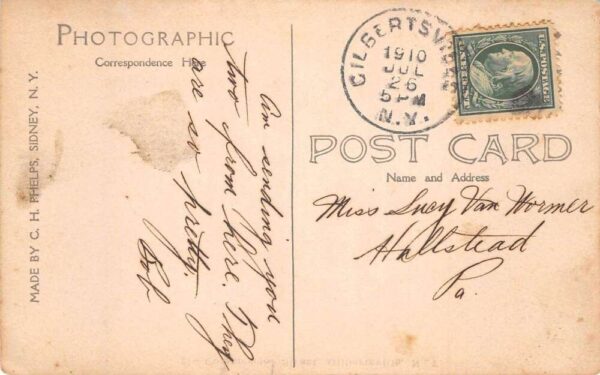 PHOTOGRAPHIC
Correspondence Here
MADE BY C. H. PHELPS, SIDNEY, N. Y.
Am sending you
two from here. They
are so pretty.
Bob
GILBERTSVILLE
1910
JUL
26
5 PM
N.Y.
U.S. POSTAGE
POST CARD
Name and Address
Miss Lucy Van Wormer
Hallstead
Pa.